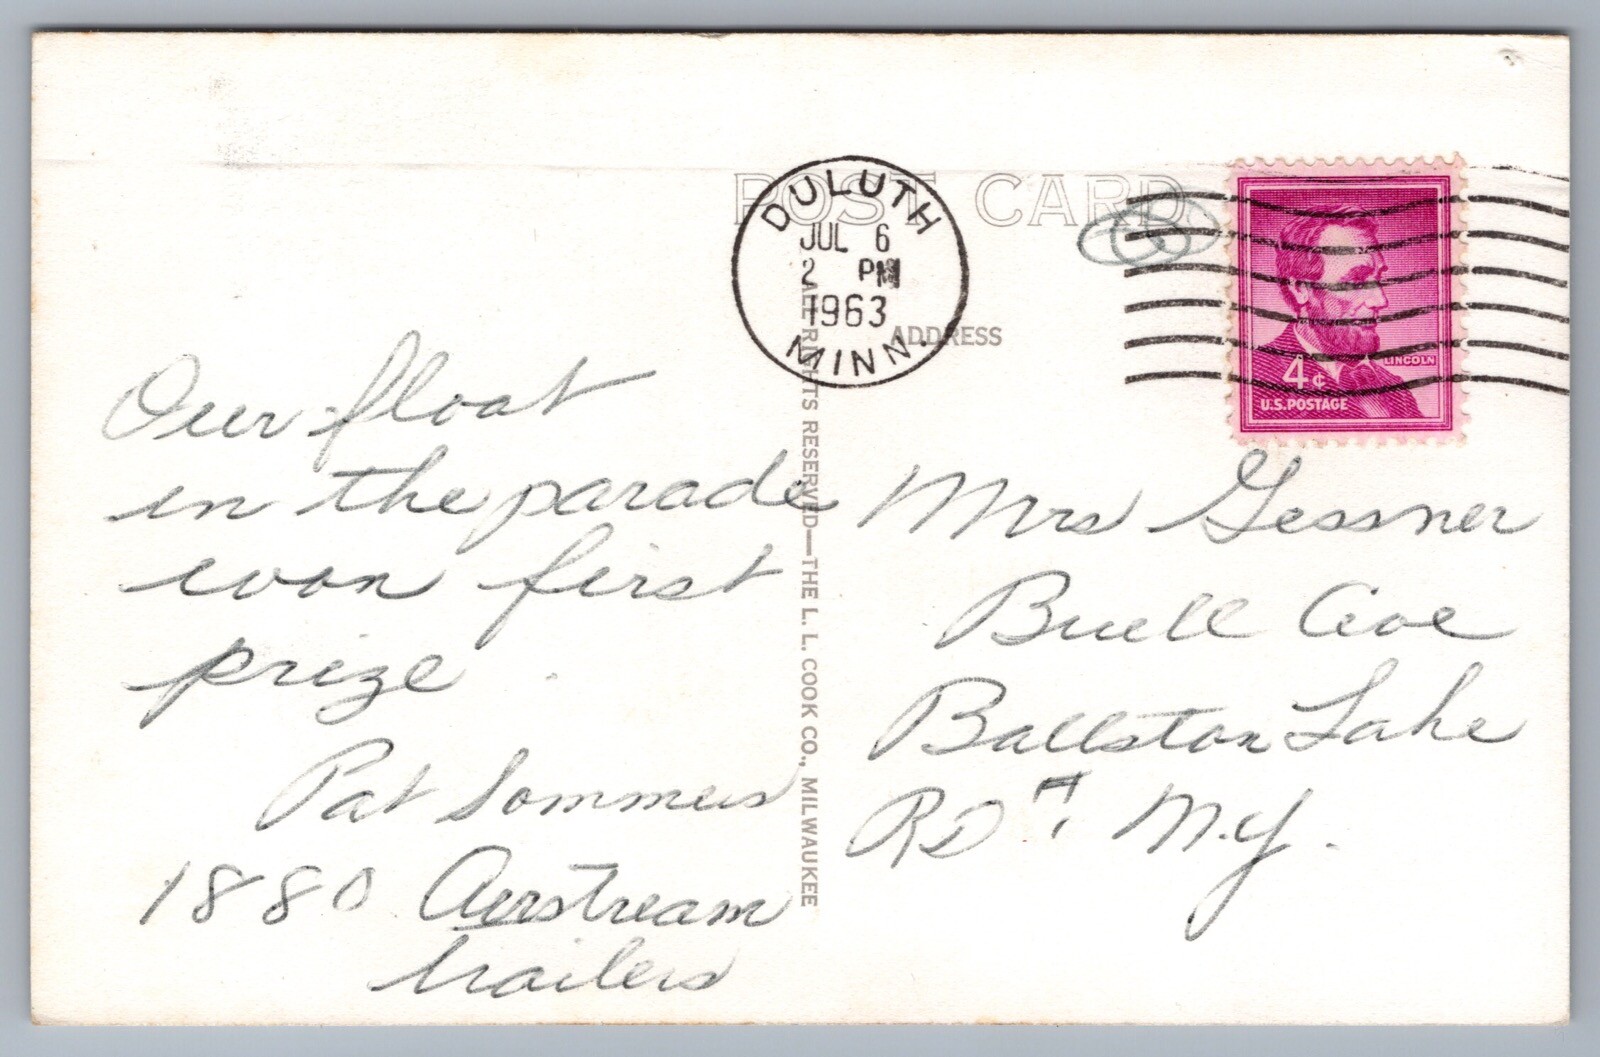 POST CARD
DULUTH
JUL 6
2 PM
1963
MINN.
ADDRESS
4¢
LINCOLN
U.S. POSTAGE
Our float
in the parade
won first
prize.
Pat Sommers
1880 Airstream
trailers
ALL RIGHTS RESERVED—THE L. L. COOK CO., MILWAUKEE
Mrs Gessner
Buell Ave
Ballston Lake
RD N.Y.